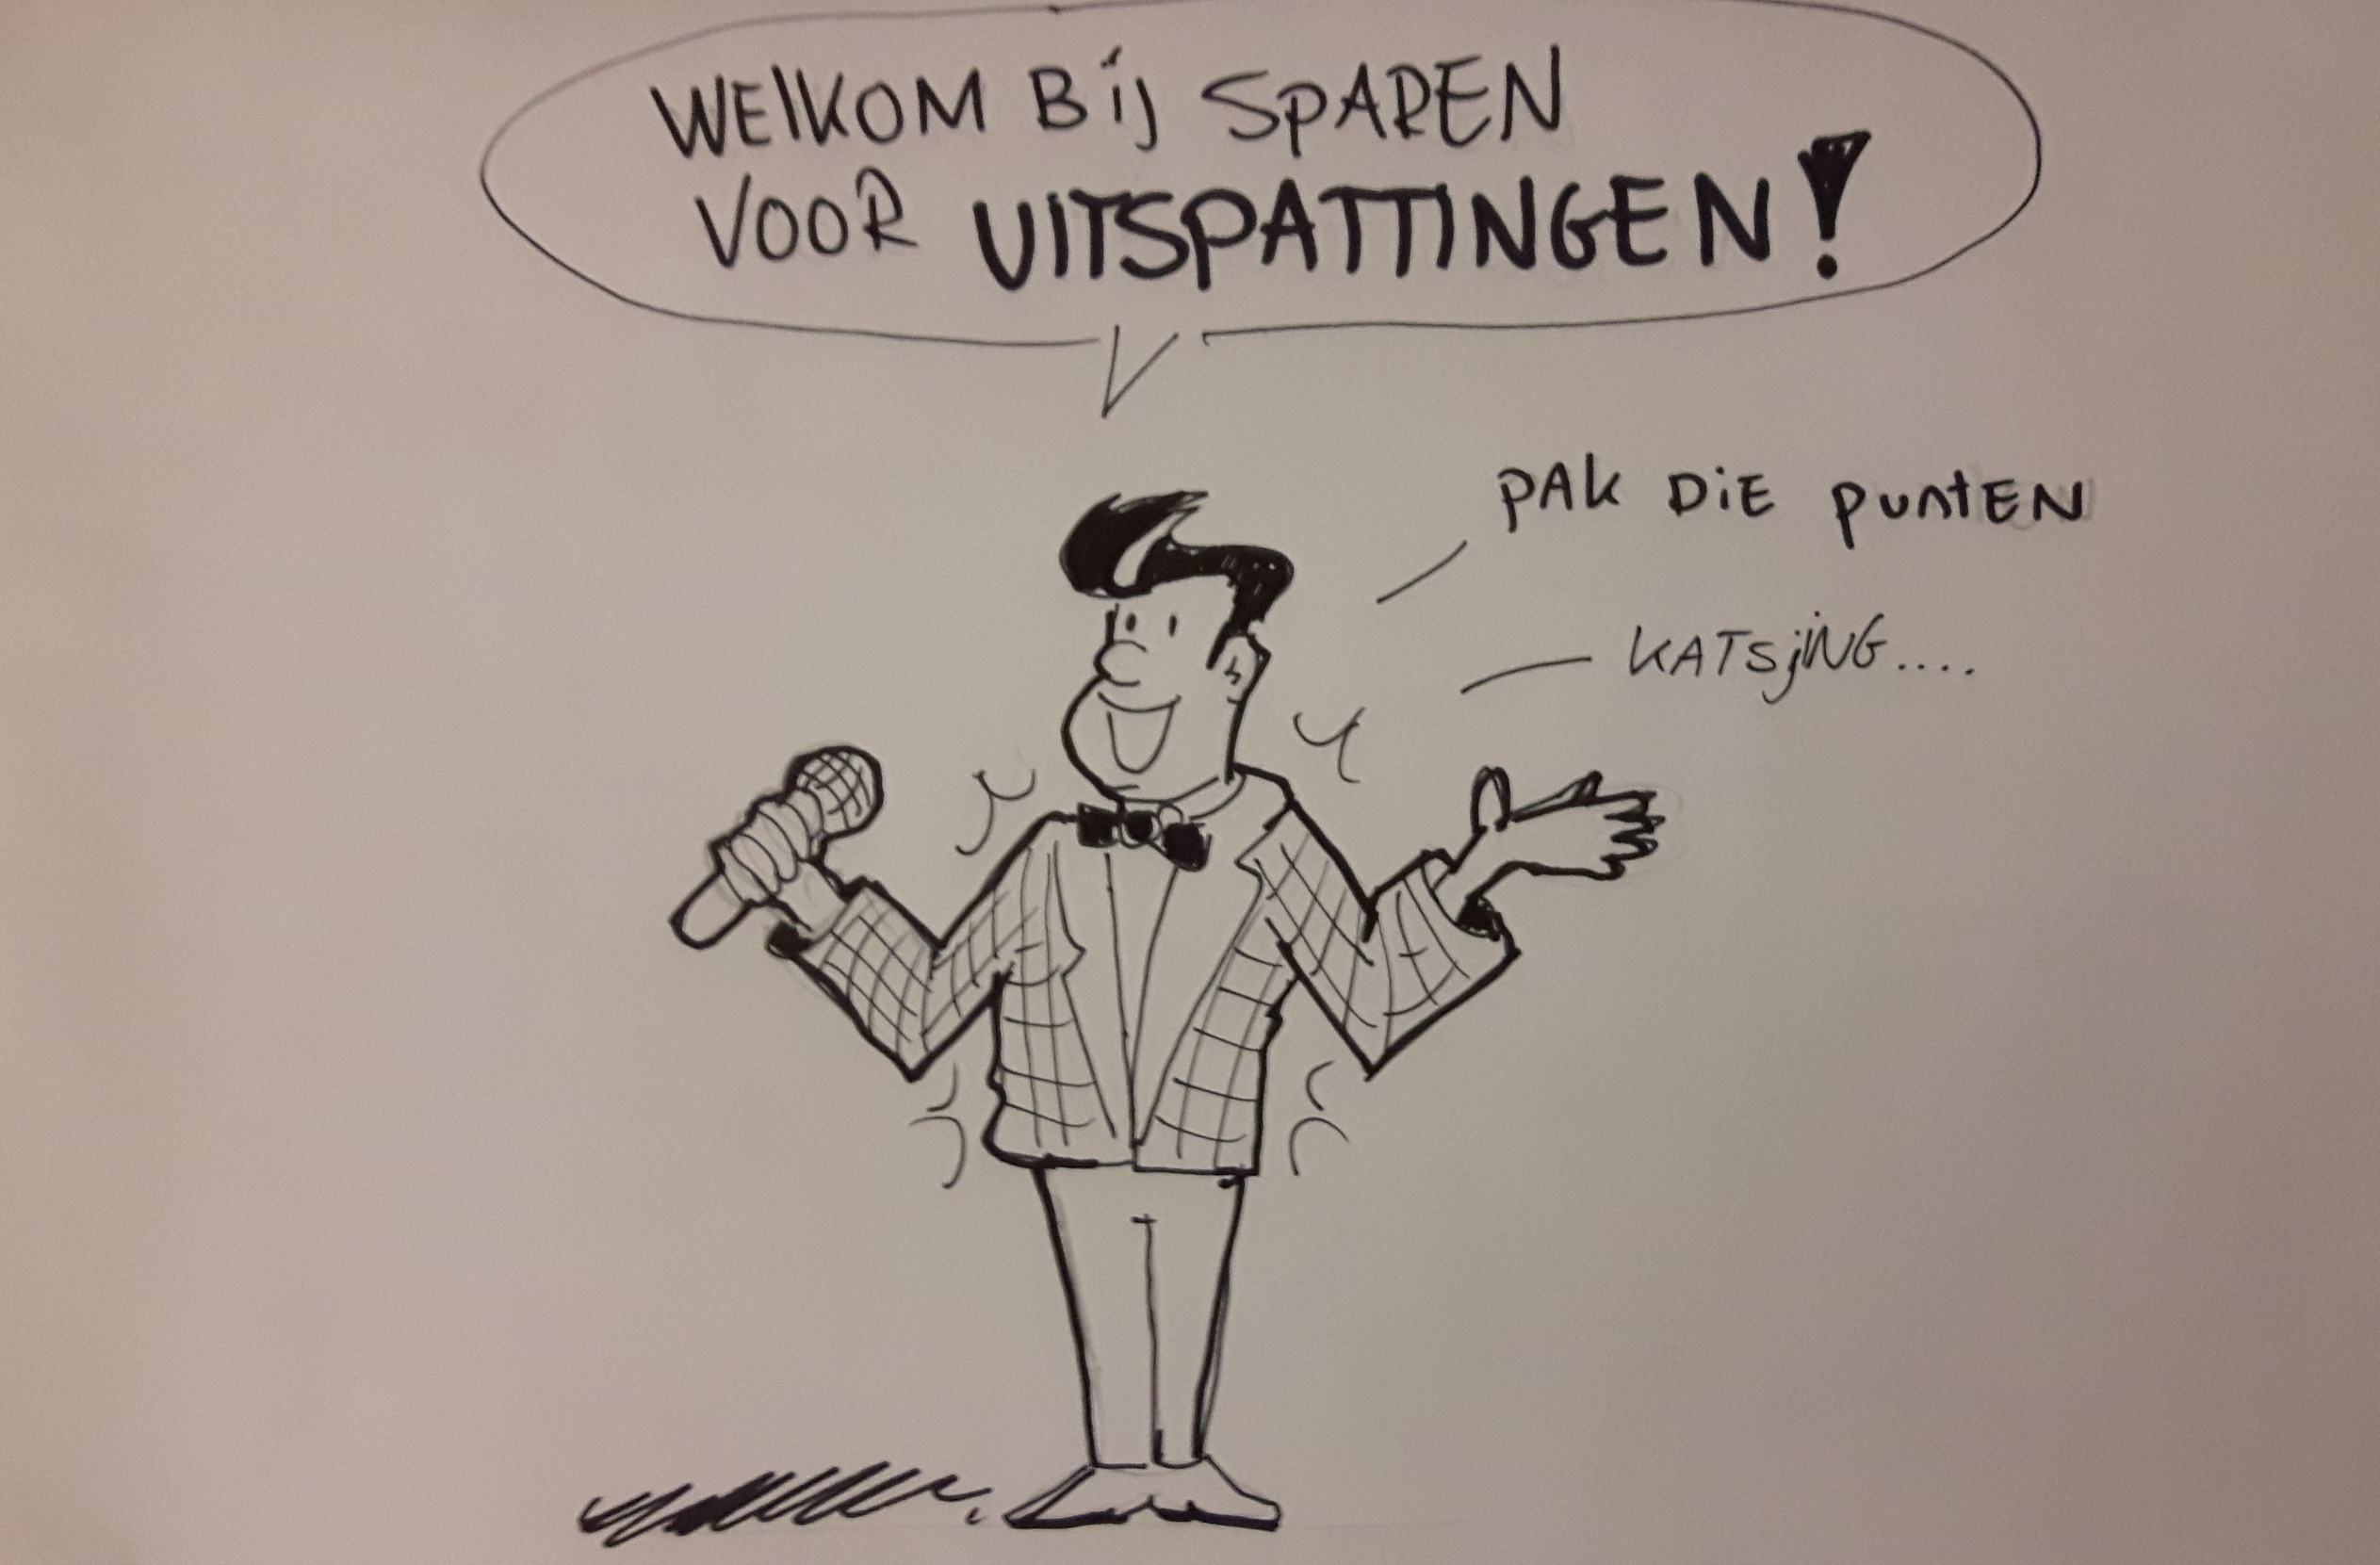 WELKOM BIJ SPAREN
VOOR UITSPATTINGEN!
PAK DIE PUNTEN
KATSJING....